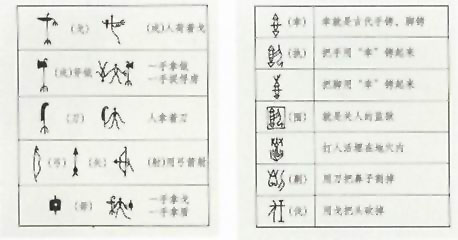 (戈) (戍)人荷着戈
(戊)斧钺 一手拿钺
一手提俘虏
(刀) 人拿着刀
(弓) (矢) (射)用弓箭射
(盾) 一手拿戈
一手拿盾
(幸) 幸就是古代手铐、脚铐
(执) 把手用“幸”铐起来
把脚用“幸”铐起来
(圉) 就是关人的监狱
打人活埋在地穴内
(劓) 用刀把鼻子割掉
(伐) 用戈把头砍掉